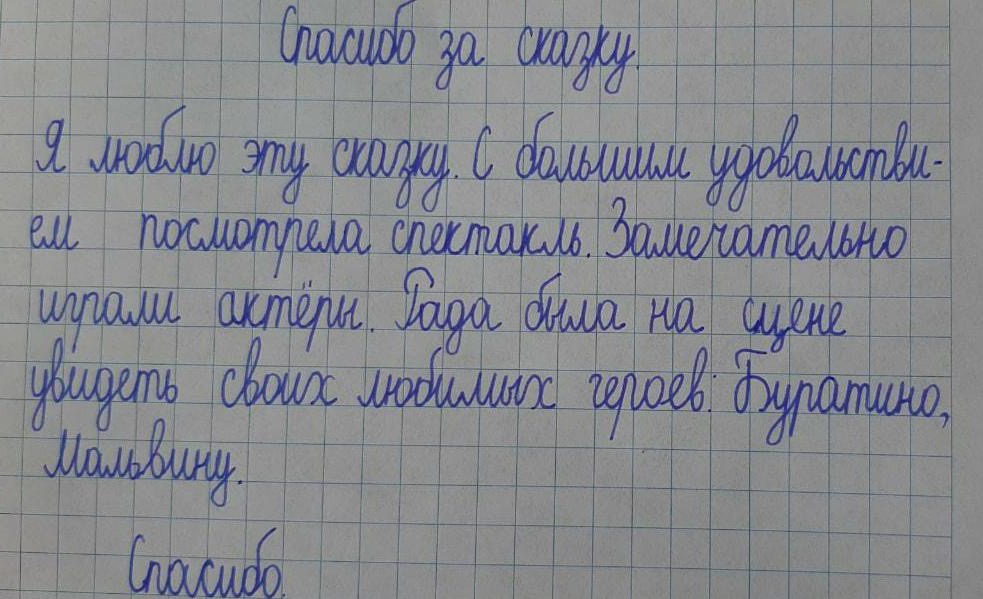 Спасибо за сказку.
Я люблю эту сказку. С большим удовольстви-
ем посмотрела спектакль. Замечательно
играли актёры. Рада была на сцене
увидеть своих любимых героев: Буратино,
Мальвину.
Спасибо.